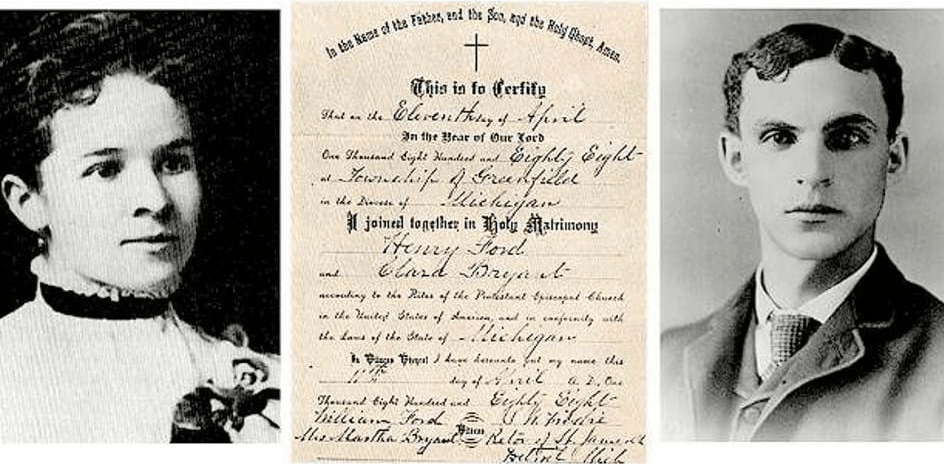 In the Name of the Father, and the Son, and the Holy Ghost, Amen.
This is to Certify
That on the Eleventh day of April
In the Year of Our Lord
One Thousand Eight Hundred and Eighty Eight
at Township of Greenfield
in the Diocese of Michigan
I joined together in Holy Matrimony
Henry Ford
and Clara Bryant
according to the Rites of the Protestant Episcopal Church
in the United States of America, and in conformity with
the Laws of the State of Michigan
In Witness Whereof I have hereunto put my name this
11th day of April A. D. One
Thousand Eight Hundred and Eighty Eight
William Ford
Mrs Martha Bryant Witness Rector of St. James Ch
Detroit Mich